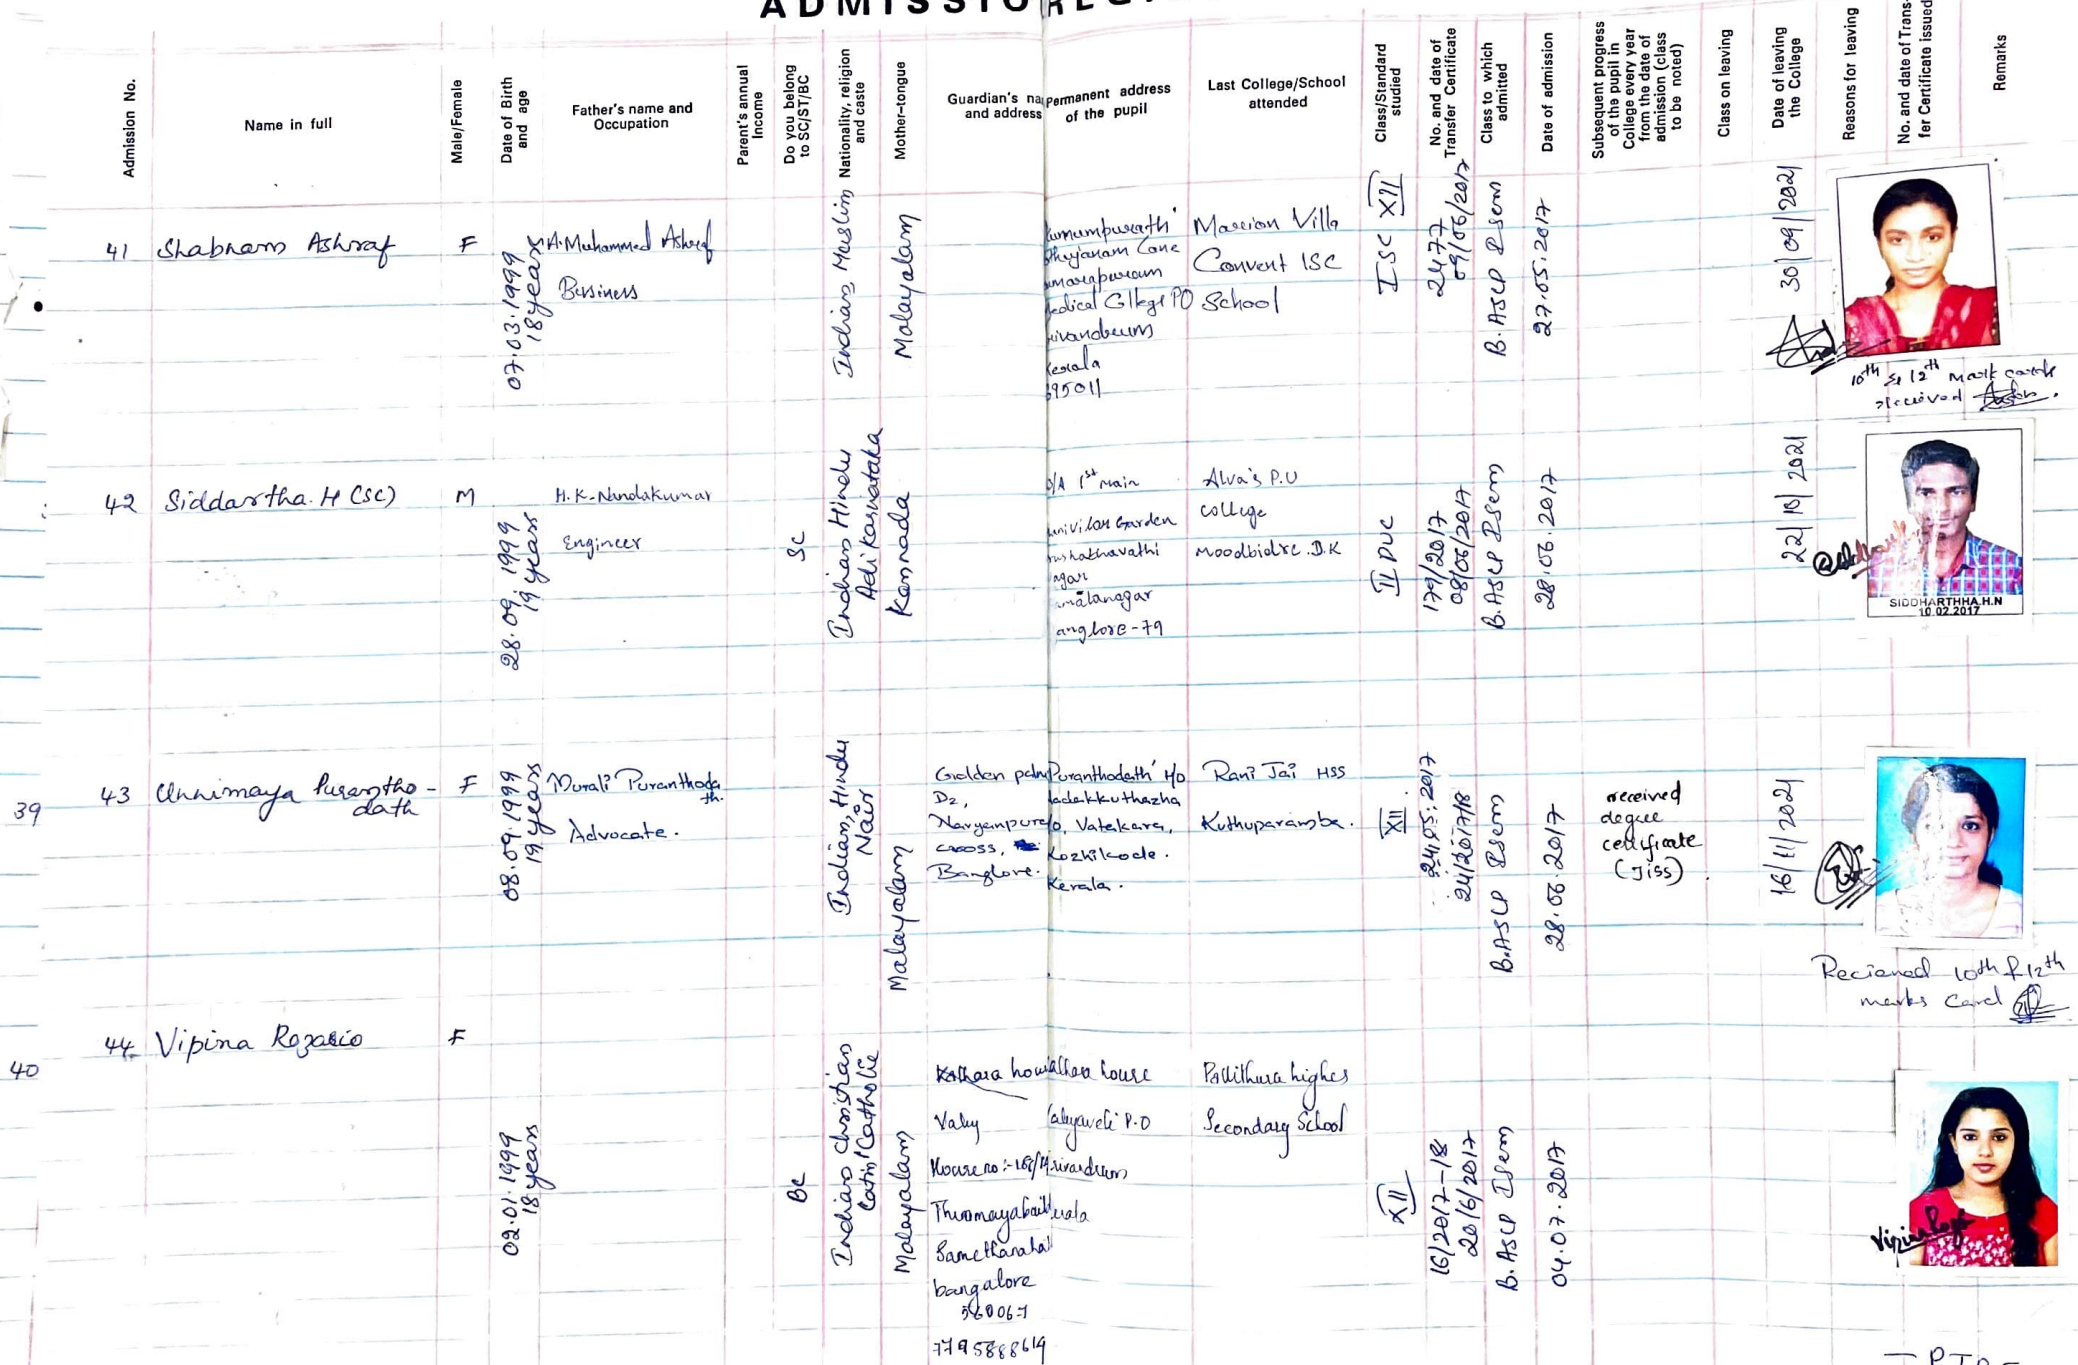 ADMISSIO
Admission No.
Name in full
Male/Female
Date of Birth
and age
Father's name and
Occupation
Parent's annual
Income
Do you belong
to SC/ST/BC
Nationality, religion
and caste
Mother-tongue
Guardian's na
and address
Permanent address
of the pupil
Last College/School
attended
Class/Standard
studied
No. and date of
Transfer Certificate
Class to which
admitted
Date of admission
Subsequent progress
of the pupil in
College every year
from the date of
admission (class
to be noted)
Class on leaving
Date of leaving
the College
Reasons for leaving
No. and date of Trans-
fer Certificate issued
Remarks
41
Shabnam Ashraf
F
07.03.1999
18 years
A. Muhammed Ashraf
Bussiness
Indian Muslim
Malayalam
Lane
edical College PO
ivandrum
Kerala
695011
Marion Villa
Convent ISC
School
ISC XII
2477
09/06/2017
B.ASLP I sem
27.05.2017
30/09/2021
10th & 12th Mark cards
received
42
Siddartha.H (SC)
M
28.09.1999
19 years
H.K.Nandakumar
Engineer
SC
Indian Hindu
Adi Karnataka
Kannada
1st Main
Garden
rushabhavathi
agar
malanagar
anglore-79
Alva's P.U
College
Moodbidre.D.K
II PUC
179/2017
08/06/2017
B.ASLP I sem
28.06.2017
22/10/2021
SIDDHARTHHA.H.N
10.02.2017
39
43
Unnimaya Purantho-
dath
F
08.09.1999
19 years
Murali Puranthoda
th.
Advocate.
Indian, Hindu
Nair
Malayalam
Golden palm
D2,
Naryanpura
cross,
Banglore.
Puranthodath H/O
adakkuthazha
Vatakara,
Kozhikode.
Kerala.
Rani Jai HSS
Kuthuparamba.
XII
24.05.2017
24/2017/18
B.ASLP I sem
28.06.2017
received
degree
certificate
(Jiss)
16/11/2021
Recieved 10th & 12th
marks Card
40
44
Vipina Rozario
F
02.01.1999
18 years
BC
Indian Christian
Latin Catholic
Malayalam
house
P.O
House no:-
bangalore
560067
7795888619
Pallithura higher
Secondary School
XII
16/2017-18
20/6/2017
B.ASLP I sem
04.07.2017